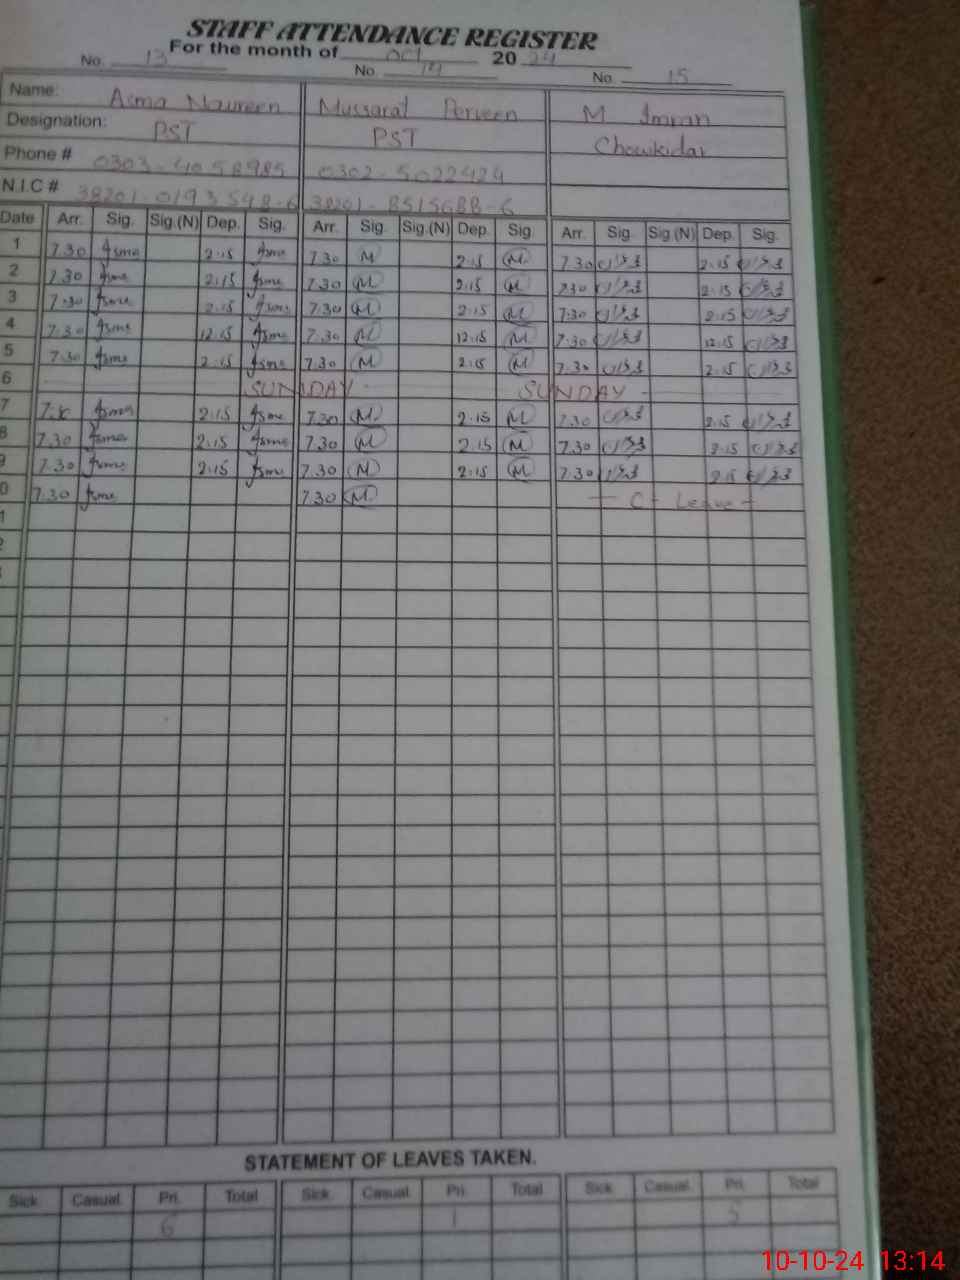 STAFF ATTENDANCE REGISTER
For the month of Oct 2024
No. 13 No. 14 No. 15
Name: Asma Naureen Mussarat Perveen M Imran
Designation: PST PST Chowkidar
Phone # 0303-4058985 0302-5022424
N.I.C # 38201-0193548-6 38201-8515688-6
Date Arr. Sig. Sig.(N) Dep. Sig. Arr. Sig. Sig.(N) Dep. Sig. Arr. Sig. Sig.(N) Dep. Sig.
1 7.30 Asma 2.15 Asma 7.30 M 2.15 M 7.30 2.15
2 7.30 Asma 2.15 Asma 7.30 M 2.15 M 7.30 2.15
3 7.30 Asma 2.15 Asma 7.30 M 2.15 M 7.30 2.15
4 7.30 Asma 12.15 Asma 7.30 M 12.15 M 7.30 12.15
5 7.30 Asma 2.15 Asma 7.30 M 2.15 M 7.30 2.15
6 SUNDAY SUNDAY
7 7.30 Asma 2.15 Asma 7.30 M 2.15 M 7.30 2.15
8 7.30 Asma 2.15 Asma 7.30 M 2.15 M 7.30 2.15
9 7.30 Asma 2.15 Asma 7.30 M 2.15 M 7.30 2.15
0 7.30 Asma 7.30 M C- Leave
1
2
STATEMENT OF LEAVES TAKEN.
Sick Casual Pri. Total Sick Casual Pri. Total Sick Casual Pri. Total
6 1 5
10-10-24 13:14